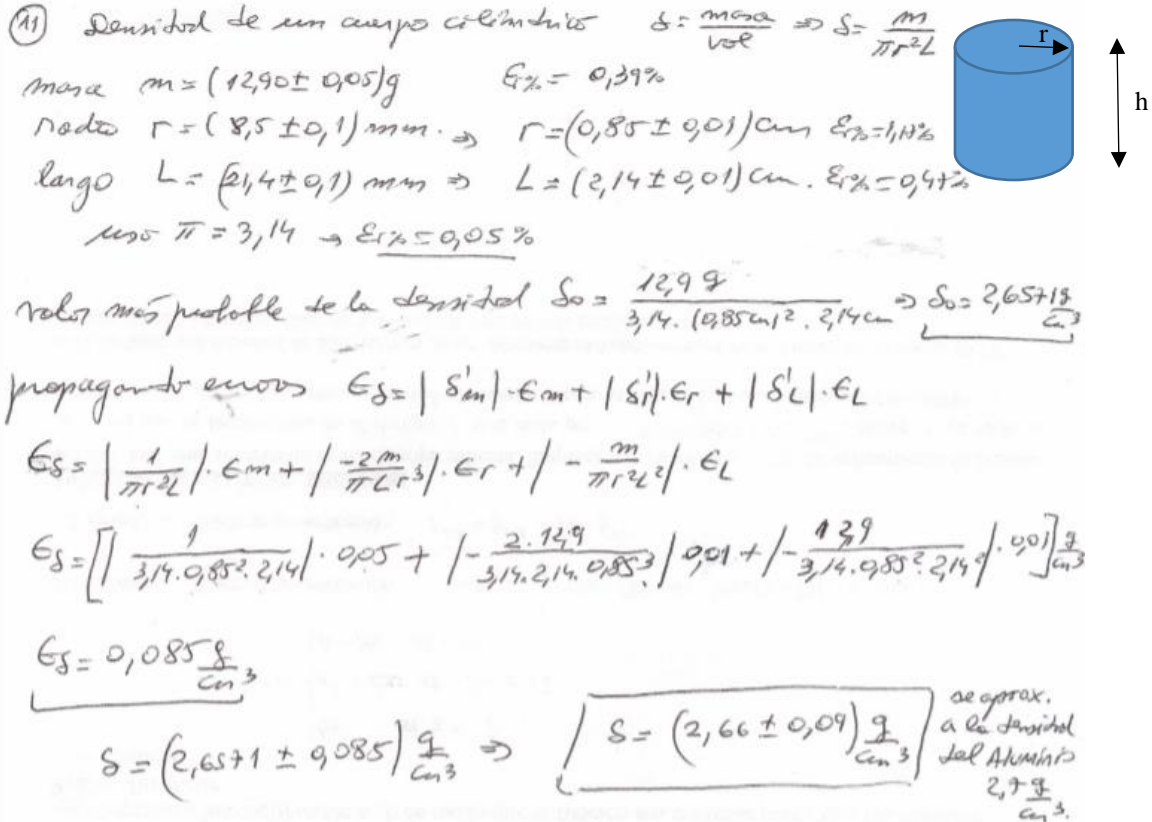 11 Densidad de un cuerpo cilíndrico δ = masa/vol ⇒ δ = m/πr²L
masa m = (12,90 ± 0,05)g Er% = 0,39%
radio r = (8,5 ± 0,1) mm. ⇒ r = (0,85 ± 0,01) cm Er% = 1,17%
largo L = (21,4 ± 0,1) mm ⇒ L = (2,14 ± 0,01) cm. Er% = 0,47%
uso π = 3,14 → Er% = 0,05%
r
h
valor más probable de la densidad δo = 12,9 g/3,14.(0,85cm)².2,14cm ⇒ δo = 2,6571 g/cm³
propagando errores Єδ = |δ'm|.Єm + |δ'r|.Єr + |δ'L|.ЄL
Єδ = |1/πr²L|.Єm + |-2m/πLr³|.Єr + |-m/πr²L²|.ЄL
Єδ = [|1/3,14.0,85².2,14|.0,05 + |-2.12,9/3,14.2,14.0,85³|0,01 + |-12,9/3,14.0,85².2,14²|.0,01] g/cm³
Єδ = 0,085 g/cm³
δ = (2,6571 ± 0,085) g/cm³ ⇒ δ = (2,66 ± 0,09) g/cm³
se aprox.
a la densidad
del Aluminio
2,7 g/cm³.